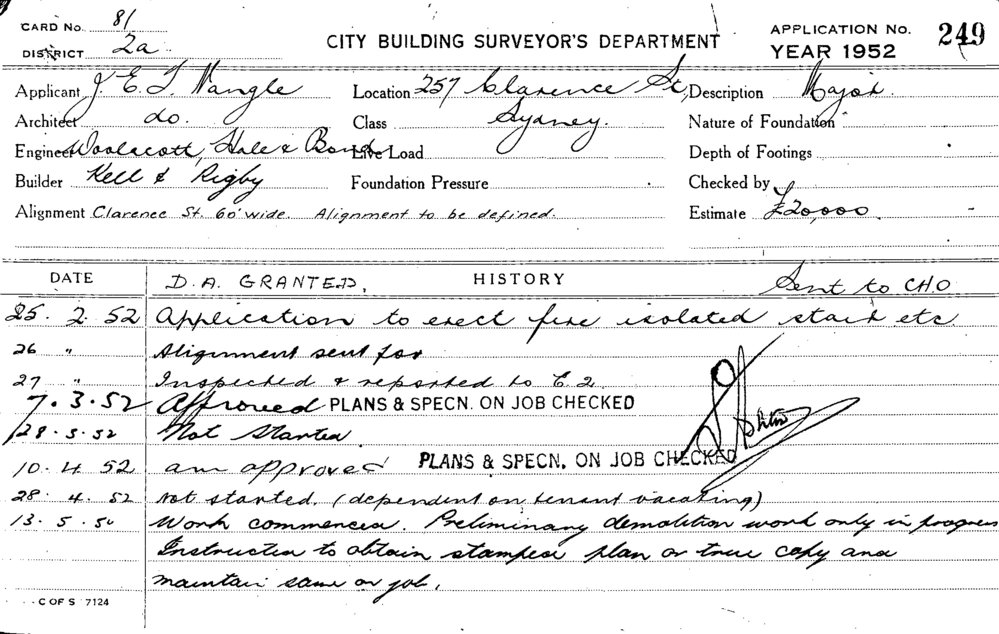 CARD No. 81
DISTRICT 2a
CITY BUILDING SURVEYOR'S DEPARTMENT
APPLICATION No. 249
YEAR 1952
Applicant J. E. T. Wangle Location 257 Clarence St, Description Major
Architect do. Class Sydney. Nature of Foundation
Engineer Woolacott, Hale & Bond Live Load Depth of Footings
Builder Kell & Rigby Foundation Pressure Checked by
Alignment Clarence St. 60' wide. Alignment to be defined. Estimate £20,000
DATE D.A. GRANTED. HISTORY Sent to CHO
25. 2. 52 Application to erect fire isolated stair etc
26 " Alignment sent for
27 " Inspected & reported to C 2
7. 3. 52 Approved PLANS & SPECN. ON JOB CHECKED
28. 3. 52 Not Started
10. 4 52 am approved PLANS & SPECN. ON JOB CHECKED
28. 4. 52 Not started. (dependent on tenant vacating)
13. 5. 52 Work commenced. Preliminary demolition work only in progress
Instructed to obtain stamped plan or true copy and
maintain same on job.
C OF S 7124